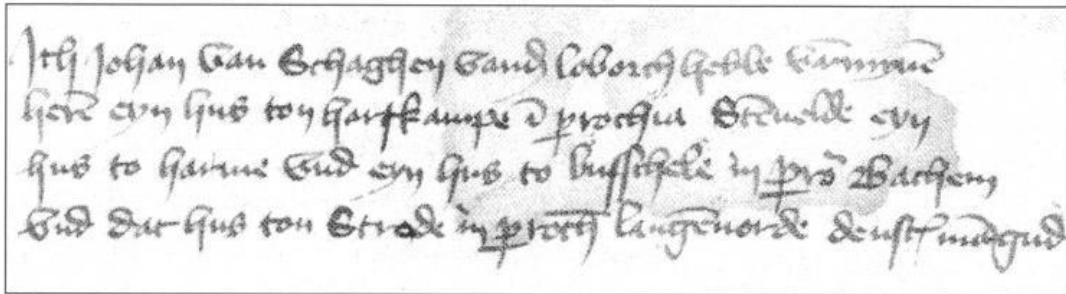 Ich Johan van Schaghen vand loborch hebbe van mynē
herē eyn hus ton harfkampe ī prochia Stēuelde eyn
hus to harme vnd eyn hus to busschele in pro Bachem
vnd dat hus ton Strode in proch langēuorde denst